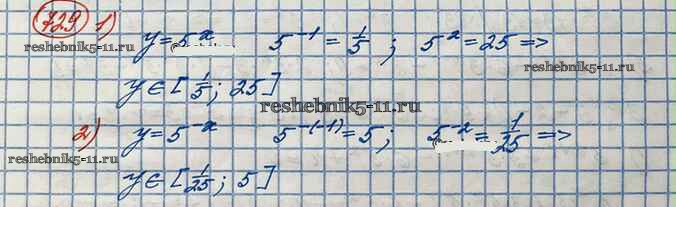 729 1) y = 5^x 5^-1 = 1/5 ; 5^2 = 25 =>
reshebnik5-11.ru reshebnik5-11.ru
y ∈ [1/5 ; 25]
reshebnik5-11.ru
2) y = 5^-x 5^-(-1) = 5 ; 5^-2 = 1/25 =>
reshebnik5-11.ru reshebnik5-11.ru
y ∈ [1/25 ; 5]